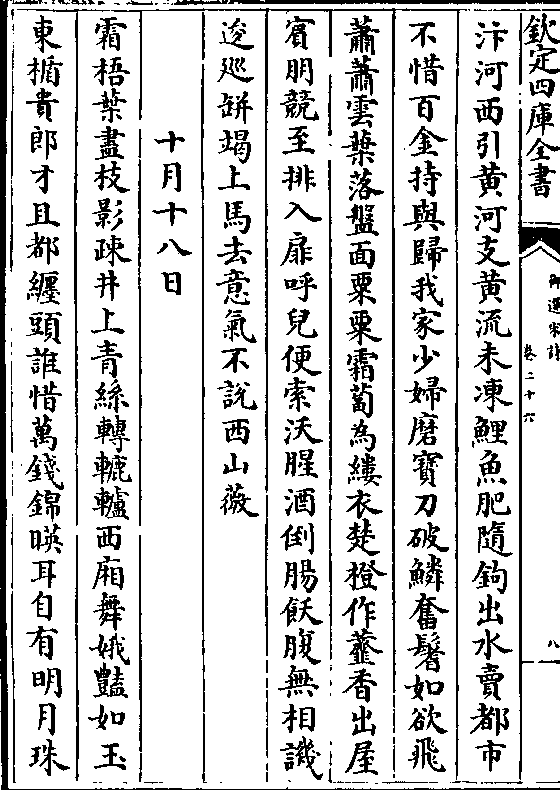 欽定四庫全書
御選宋詩
卷二十六
八
汴河西引黄河支黄流未凍鯉魚肥隨鉤出水賣都市
不惜百金持與歸我家少婦磨寳刀破鱗奮鬐如欲飛
蕭蕭雲葉落盤面粟粟霜蔔為縷衣楚橙作虀香出屋
賔朋競至排入扉呼兒便索沃腥酒倒腸飫腹無相譏
逡廵缾竭上馬去意氣不説西山薇
十月十八日
霜梧葉盡枝影疎井上青絲轉轆轤西廂舞娥豔如玉
東楯貴郎才且都纒頭誰惜萬錢錦暎耳自有明月珠